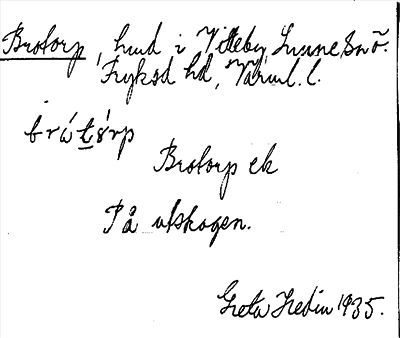 Brotorp, hmd i Vitteby, Sunne sn
Fryksd hd, Värml. l.
brót̲órp
Brotorp ek
På utskogen.
Greta Hedin 1935.